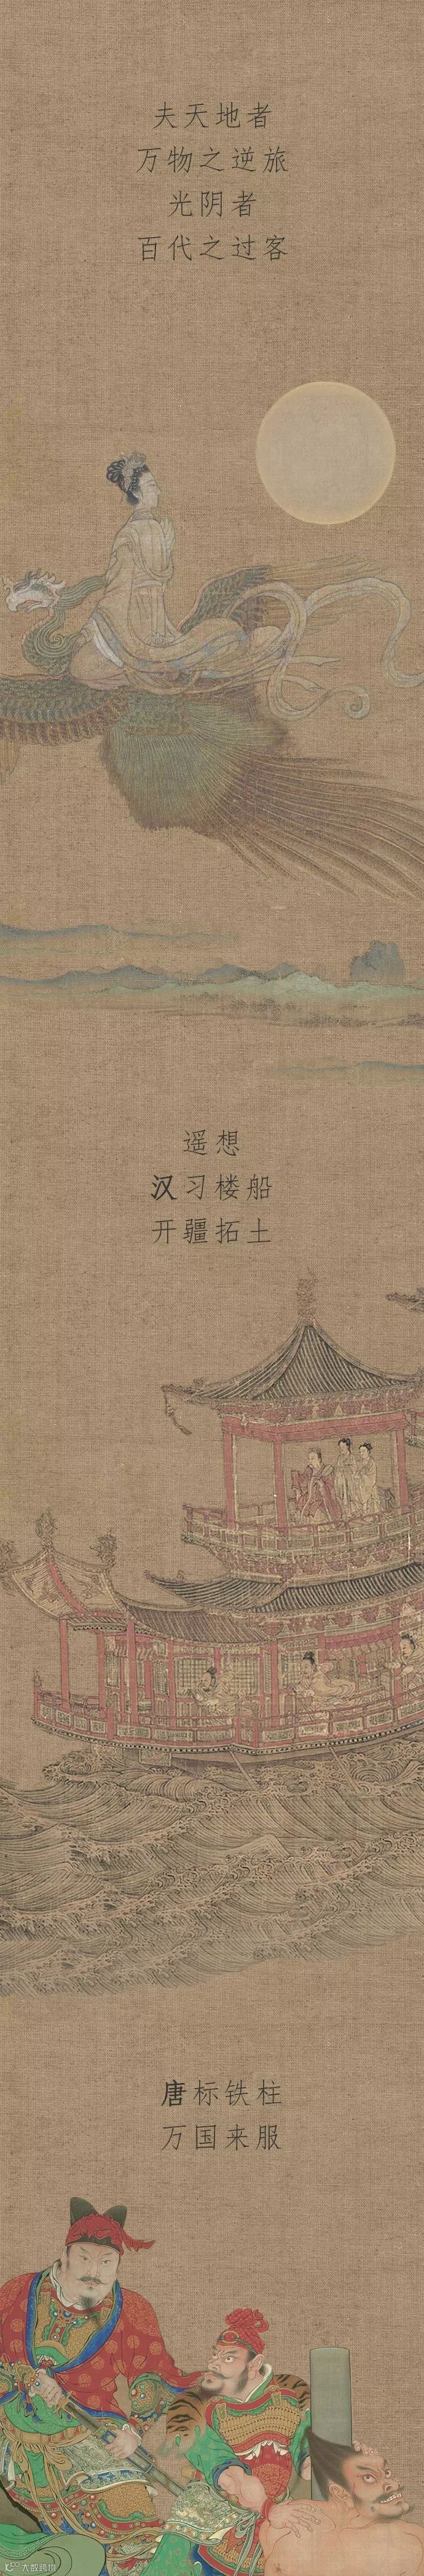 夫天地者
万物之逆旅
光阴者
百代之过客
遥想
汉习楼船
开疆拓土
唐标铁柱
万国来服
大数跨境